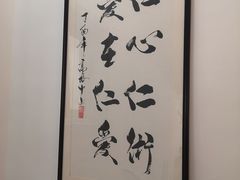 仁心仁術
愛在仁愛
丁酉年